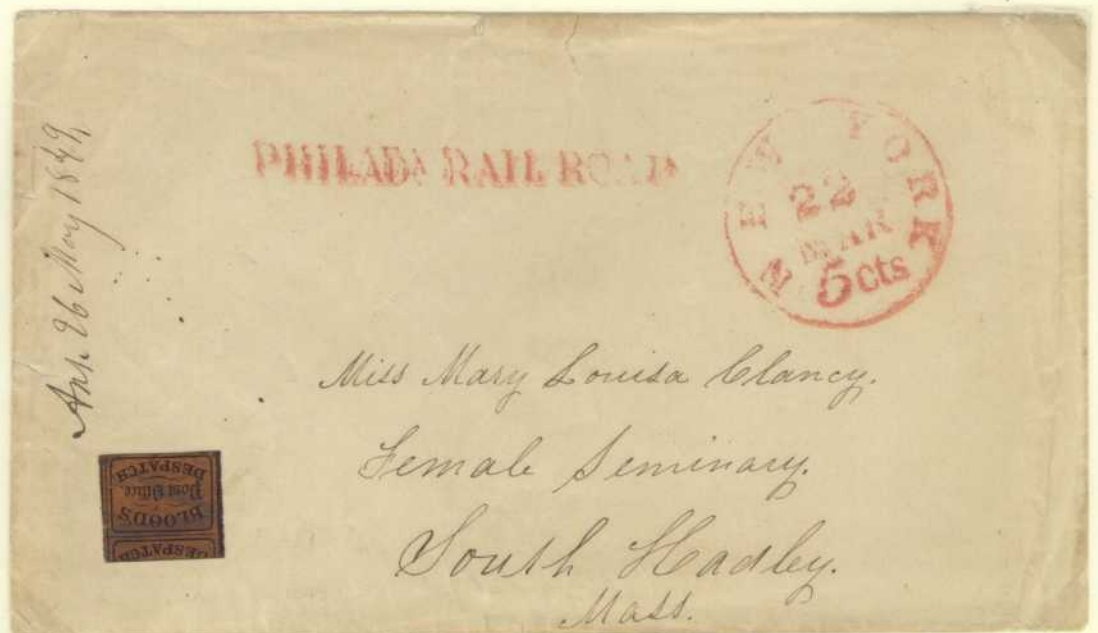 Ans. 26 May 1849,
PHILADA RAIL ROAD
NEW YORK
22
MAR
5 cts
Miss Mary Louisa Clancy.
Female Seminary.
South Hadley.
Mass.
BLOOD'S
Post Office.
DESPATCH
DESPATCH